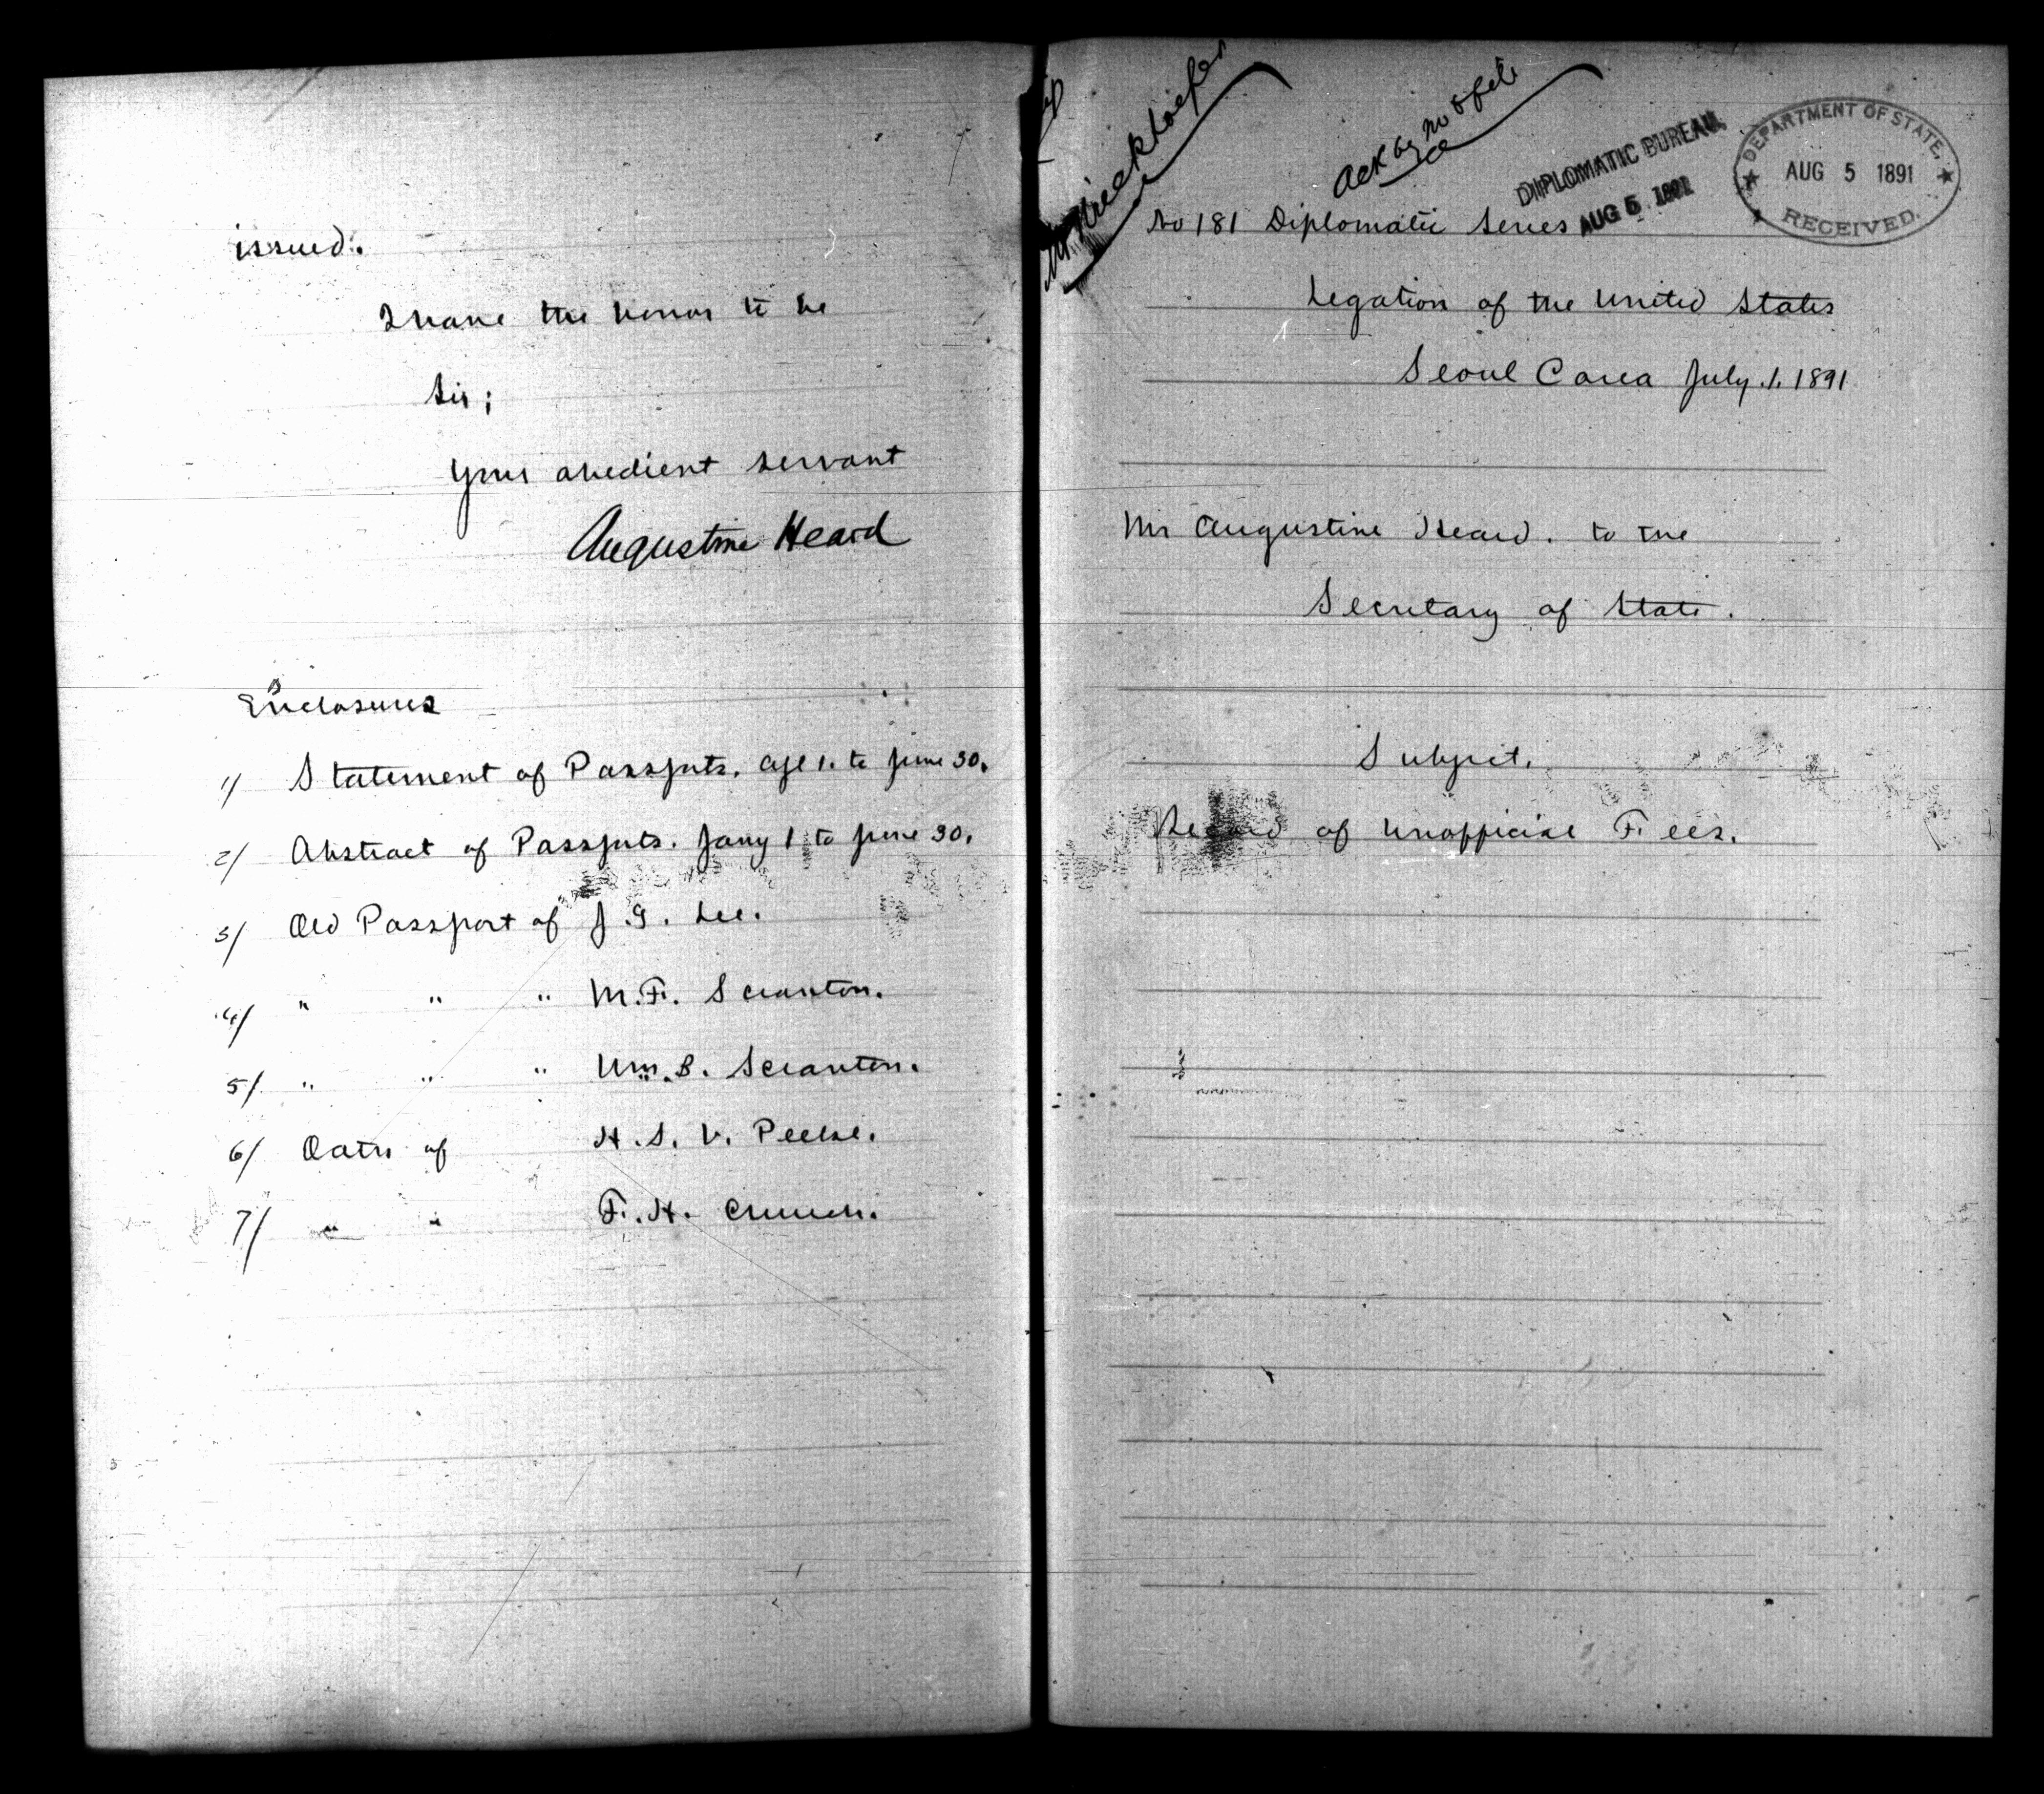 issued.
I have the honor to be
Sir;
Your obedient servant
Augustine Heard
Enclosures
1/ Statement of Passports. Apl 1. to June 30.
2/ Abstract of Passports. Jany 1 to June 30.
3/ Old Passport of J. G. Lee.
4/ " " " M. F. Scranton.
5/ " " " Wm. B. Scranton.
6/ Oath of H. S. V. Peeke.
7/ " " F. H. Church.
Ack by
DIPLOMATIC BUREAU.
AUG 5 1891
DEPARTMENT OF STATE.
AUG 5 1891
RECEIVED.
No 181 Diplomatic Series
Legation of the United States
Seoul Corea July. 1. 1891
Mr Augustine Heard. to the
Secretary of State.
Subject.
Record of Unofficial Fees.